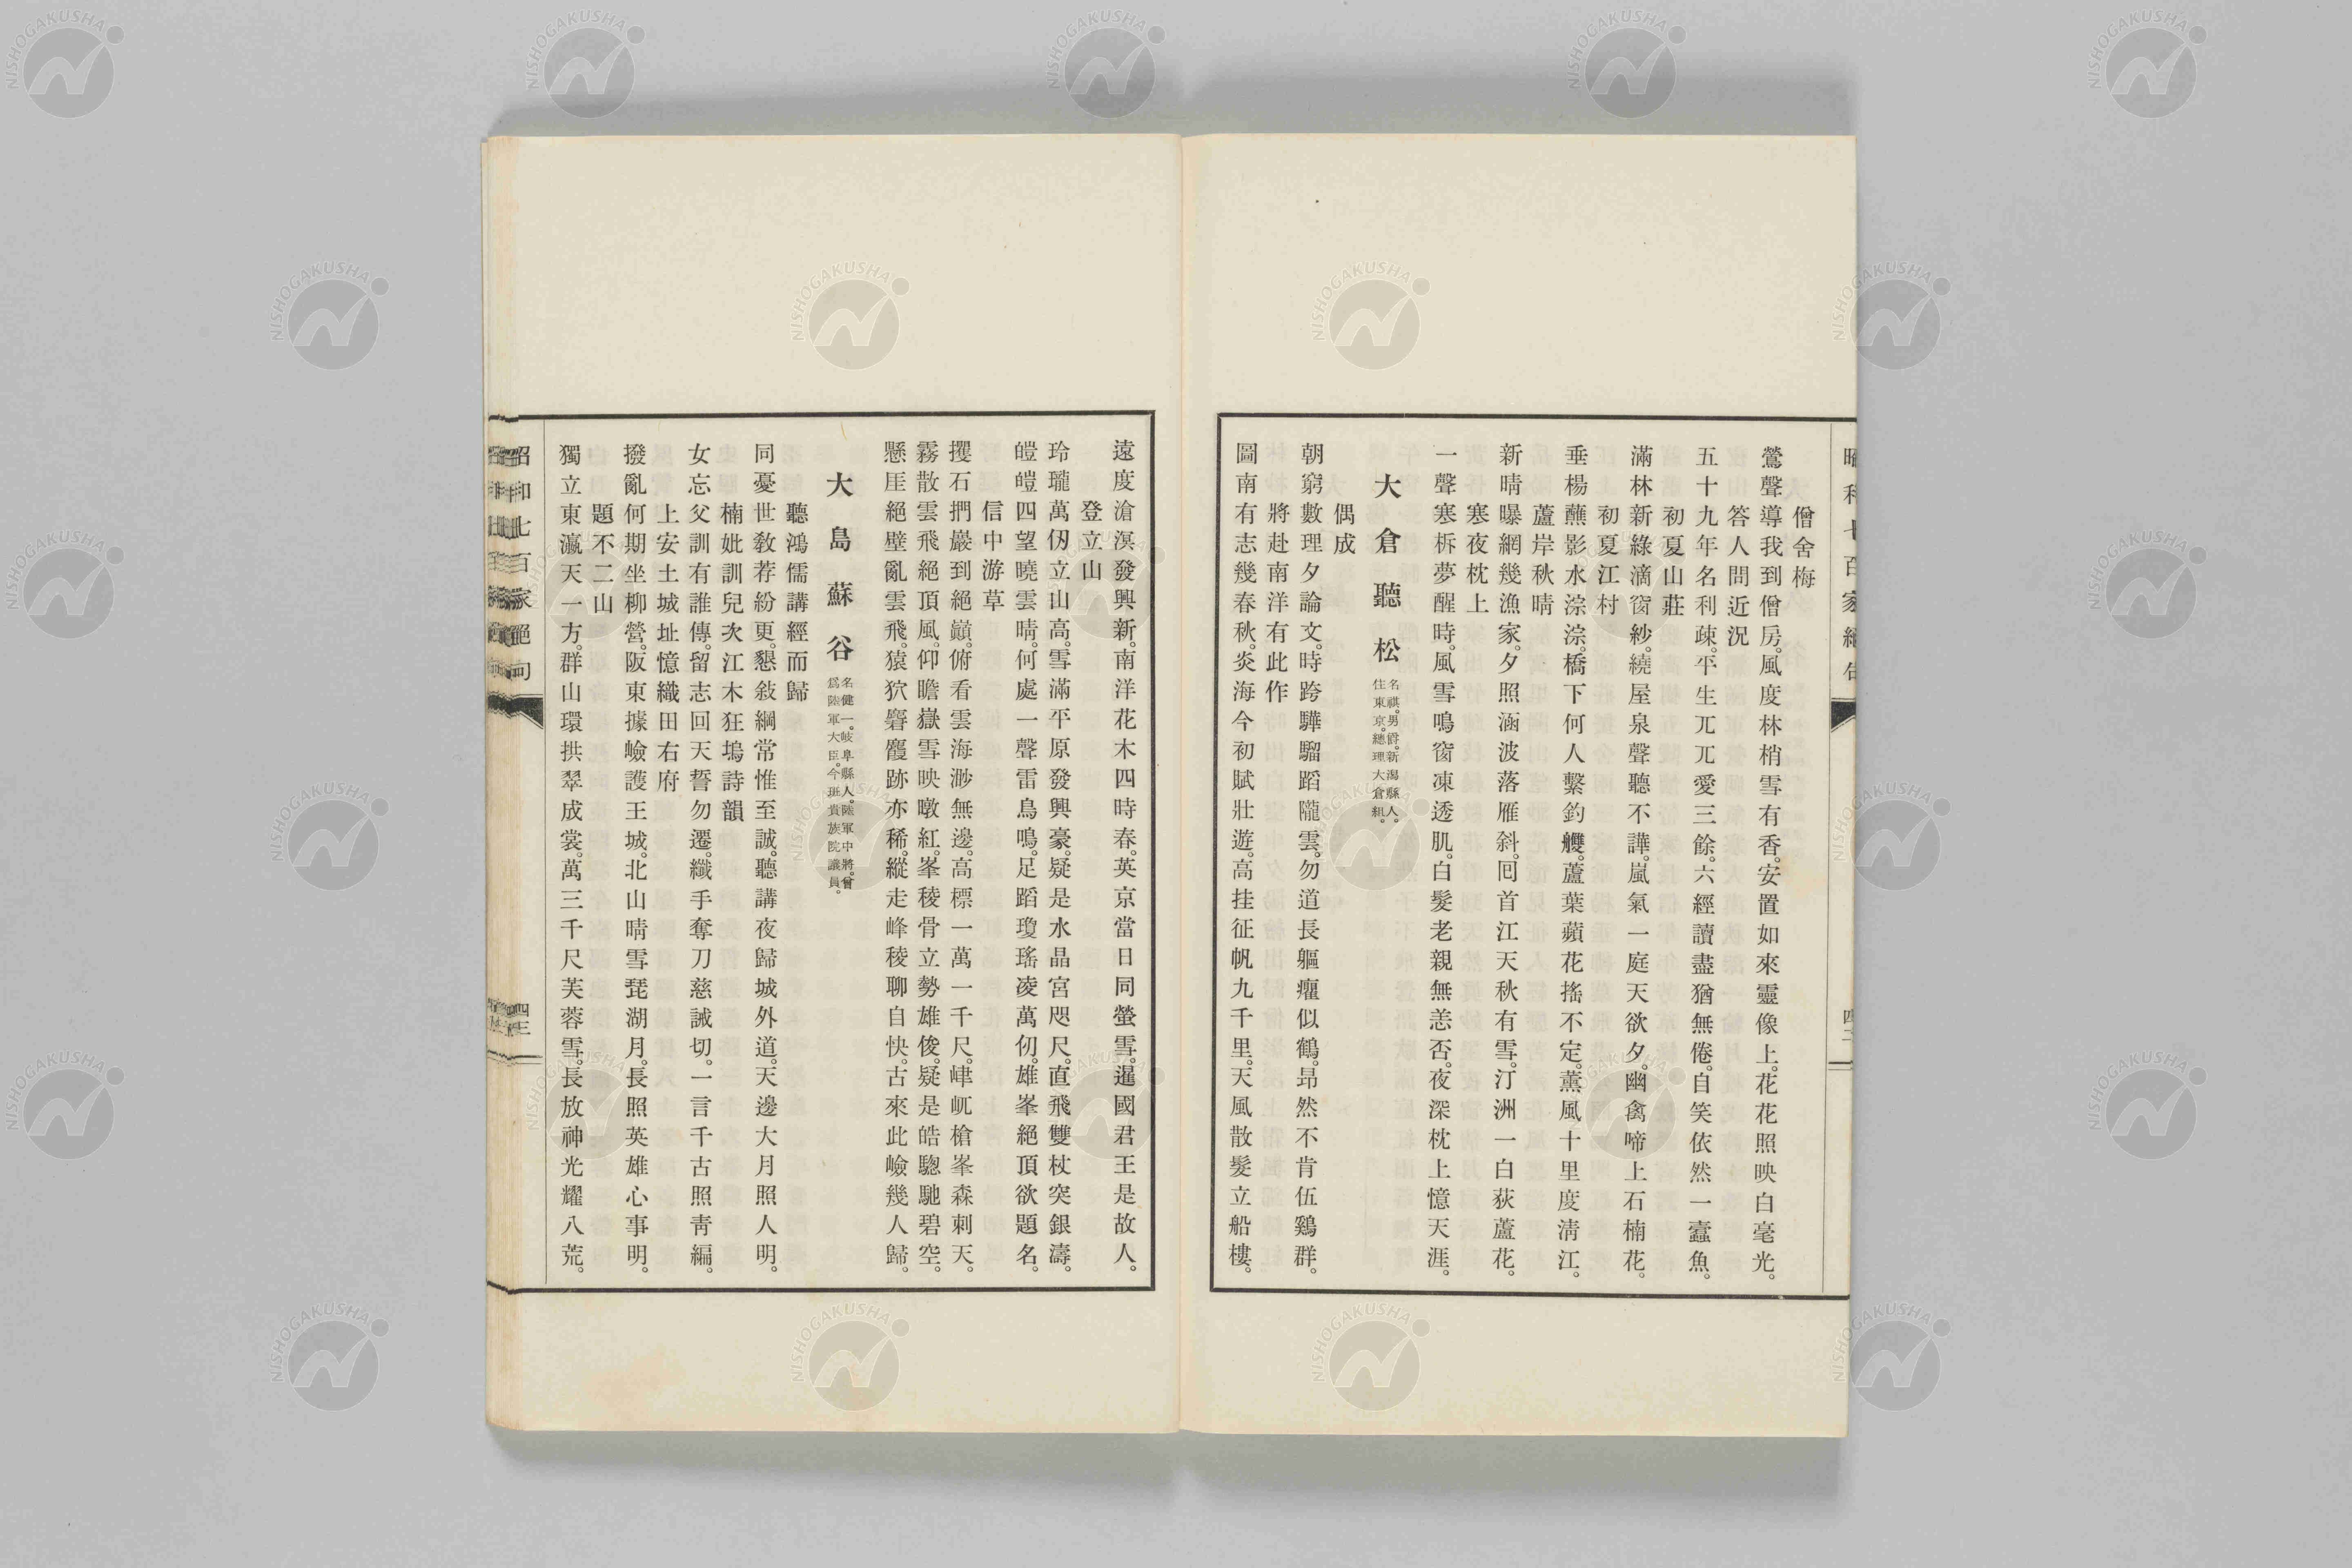 昭和七百家絕句
四二
僧舍梅
鶯聲導我到僧房。風度林梢雪有香。安置如來靈像上。花花照映白毫光。
答人問近況
五十九年名利疎。平生兀兀愛三餘。六經讀盡猶無倦。自笑依然一蠹魚。
初夏山莊
滿林新綠滴窗紗。繞屋泉聲聽不譁。嵐氣一庭天欲夕。幽禽啼上石楠花。
初夏江村
垂楊蘸影水淙淙。橋下何人繫釣艭。蘆葉蘋花搖不定。薰風十里度淸江。
蘆岸秋晴
新晴曝網幾漁家。夕照涵波落雁斜。回首江天秋有雪。汀洲一白荻蘆花。
寒夜枕上
一聲寒柝夢醒時。風雪鳴窗凍透肌。白髮老親無恙否。夜深枕上憶天涯。
大倉聽松
名祺。男爵。新潟縣人。
住東京。總理大倉組。
偶成
朝窮數理夕論文。時跨驊騮蹈隴雲。勿道長軀癯似鶴。昻然不肯伍鷄群。
將赴南洋有此作
圖南有志幾春秋。炎海今初賦壯遊。高挂征帆九千里。天風散髮立船樓。
遠度滄溟發興新。南洋花木四時春。英京當日同螢雪。暹國君王是故人。
登立山
玲瓏萬仞立山高。雪滿平原發興豪。疑是水晶宮咫尺。直飛雙杖突銀濤。
皚皚四望曉雲晴。何處一聲雷鳥鳴。足蹈瓊瑤凌萬仞。雄峯絕頂欲題名。
信中游草
攫石捫巖到絕巓。俯看雲海渺無邊。高標一萬一千尺。峍屼槍峯森刺天。
霧散雲飛絕頂風。仰瞻嶽雪映暾紅。峯稜骨立勢雄俊。疑是皓驄馳碧空。
懸厓絕壁亂雲飛。猿狖麕跡亦稀。縱走峰稜聊自快。古來此嶮幾人歸。
大島蘇谷
名健一。岐阜縣人。陸軍中將。曾
爲陸軍大臣。今班貴族院議員。
聽鴻儒講經而歸
同憂世敎荐紛更。懇敍綱常惟至誠。聽講夜歸城外道。天邊大月照人明。
楠妣訓兒次江木狂塢詩韻
女忘父訓有誰傳。留志回天誓勿遷。纖手奪刀慈誡切。一言千古照靑編。
上安土城址憶織田右府
撥亂何期坐柳營。阪東據嶮護王城。北山晴雪琵湖月。長照英雄心事明。
題不二山
獨立東瀛天一方。群山環拱翠成裳。萬三千尺芙蓉雪。長放神光耀八荒。
昭和七百家絕句
四三